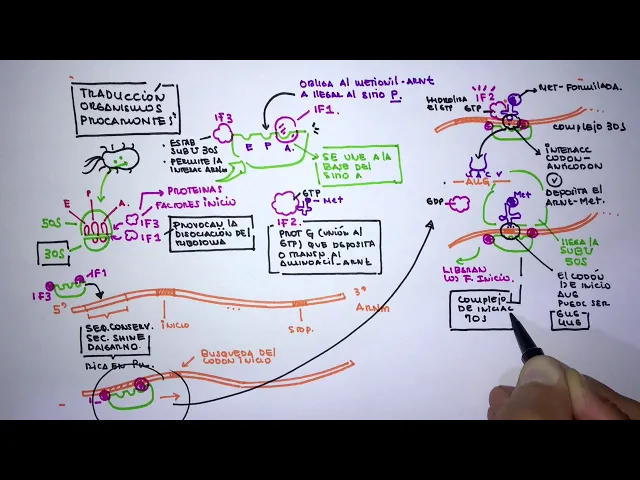 TRADUCCIÓN
ORGANISMOS
PROCARIONTES
E
P
A.
50S
30S
PROTEINAS
FACTORES INICIO
IF3
IF1
PROVOCAN LA
DISOCIACIÓN DEL
RIBOSOMA
IF3
• ESTAB.
SUBU 30S
• PERMITE LA
INTERAC ARNm
E P A.
OBLIGA AL METIONIL-ARNt
A LLEGAR AL SITIO P.
IF1.
SE UNE A LA
BASE DEL
SITIO A
GTP
Met
IF2.
PROT G (UNIÓN AL
GTP) QUE DEPOSITA
O TRANSP. AL
AMINOACIL-ARNt
IF3
IF1
5'
3'
ARNm
INICIO
STOP.
SEQ. CONSERV.
SEC. SHINE
DALGARNO.
RICA EN PU.
BUSQUEDA DEL
CODON INICIO
HIDROLIZA
EL GTP
IF2
GTP
MET-FORMILADA.
COMPLEJO 30S
INTERACC
CODON-
ANTICODON
AUG
DEPOSITA EL
ARNt-MET.
GDP
Met
LLEGA LA
SUBU
50S
LIBERAN
LOS F. INICIO.
EL CODÓN
DE INICIO
AUG
PUEDE SER
GUG-
UUG
COMPLEJO
DE INICIAC
70S